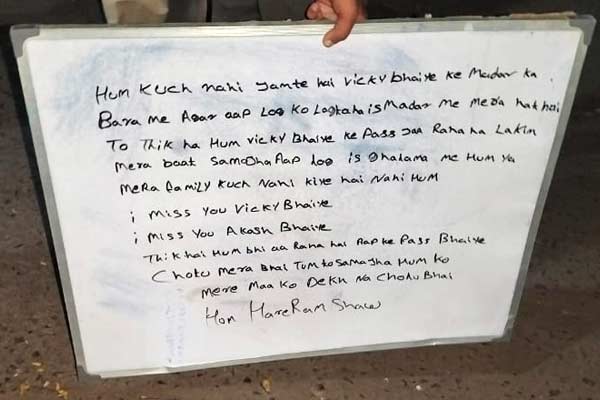 Hum Kuch nahi Jamte hai Vicky Bhaiye ke Madar ka
Bara me Agar aap Log ko Lagtaha is Madar me mera hak hai
To Thik ha Hum Vicky Bhaiye ke Pass Jaa Raha ha Lakin
mera baat Samajha Aap Log is Jhalama me Hum ya
mera Family Kuch Nahi kiye hai Nahi Hum
i miss You Vicky Bhaiye
i miss You Akash Bhaiye
Thik hai Hum bhi aa Raha hai Aap ke Pass Bhaiye
Chotu mera Bhai Tum to Samajha Hum ko
mere Maa ko Dekh Na Chotu Bhai
Hom HareRam Shaw